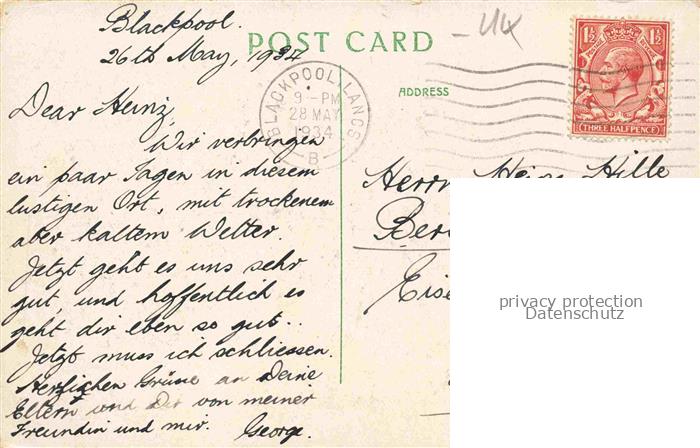 Blackpool.
26th May, 1934
POST CARD
- UK
1½ 1½
POSTAGE REVENUE
THREE HALFPENCE
BLACKPOOL, LANCS
9 - PM
28 MAY
1934
B
ADDRESS
Dear Heinz,
Wir verbringen
ein paar Tagen in diesem
lustigen Ort, mit trockenem
aber kaltem Wetter.
Jetzt geht es uns sehr
gut, und hoffentlich es
geht dir eben so gut..
Jetzt muss ich schliessen.
Herzlichen Grüsse an Deine
Eltern und Dir von meiner
Freundin und mir. George.
Herrn Heinz Hille
Ber
Eise
privacy protection
Datenschutz